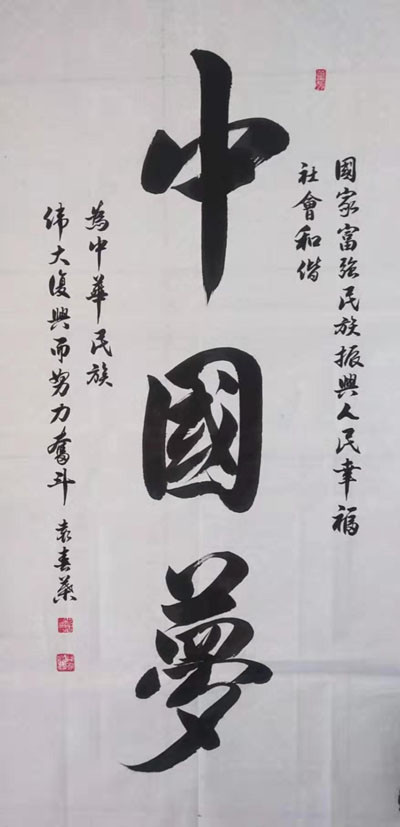 國家富強民族振興人民幸福
社會和偕
中國夢
為中華民族
偉大復興而努力奮斗
袁春葉